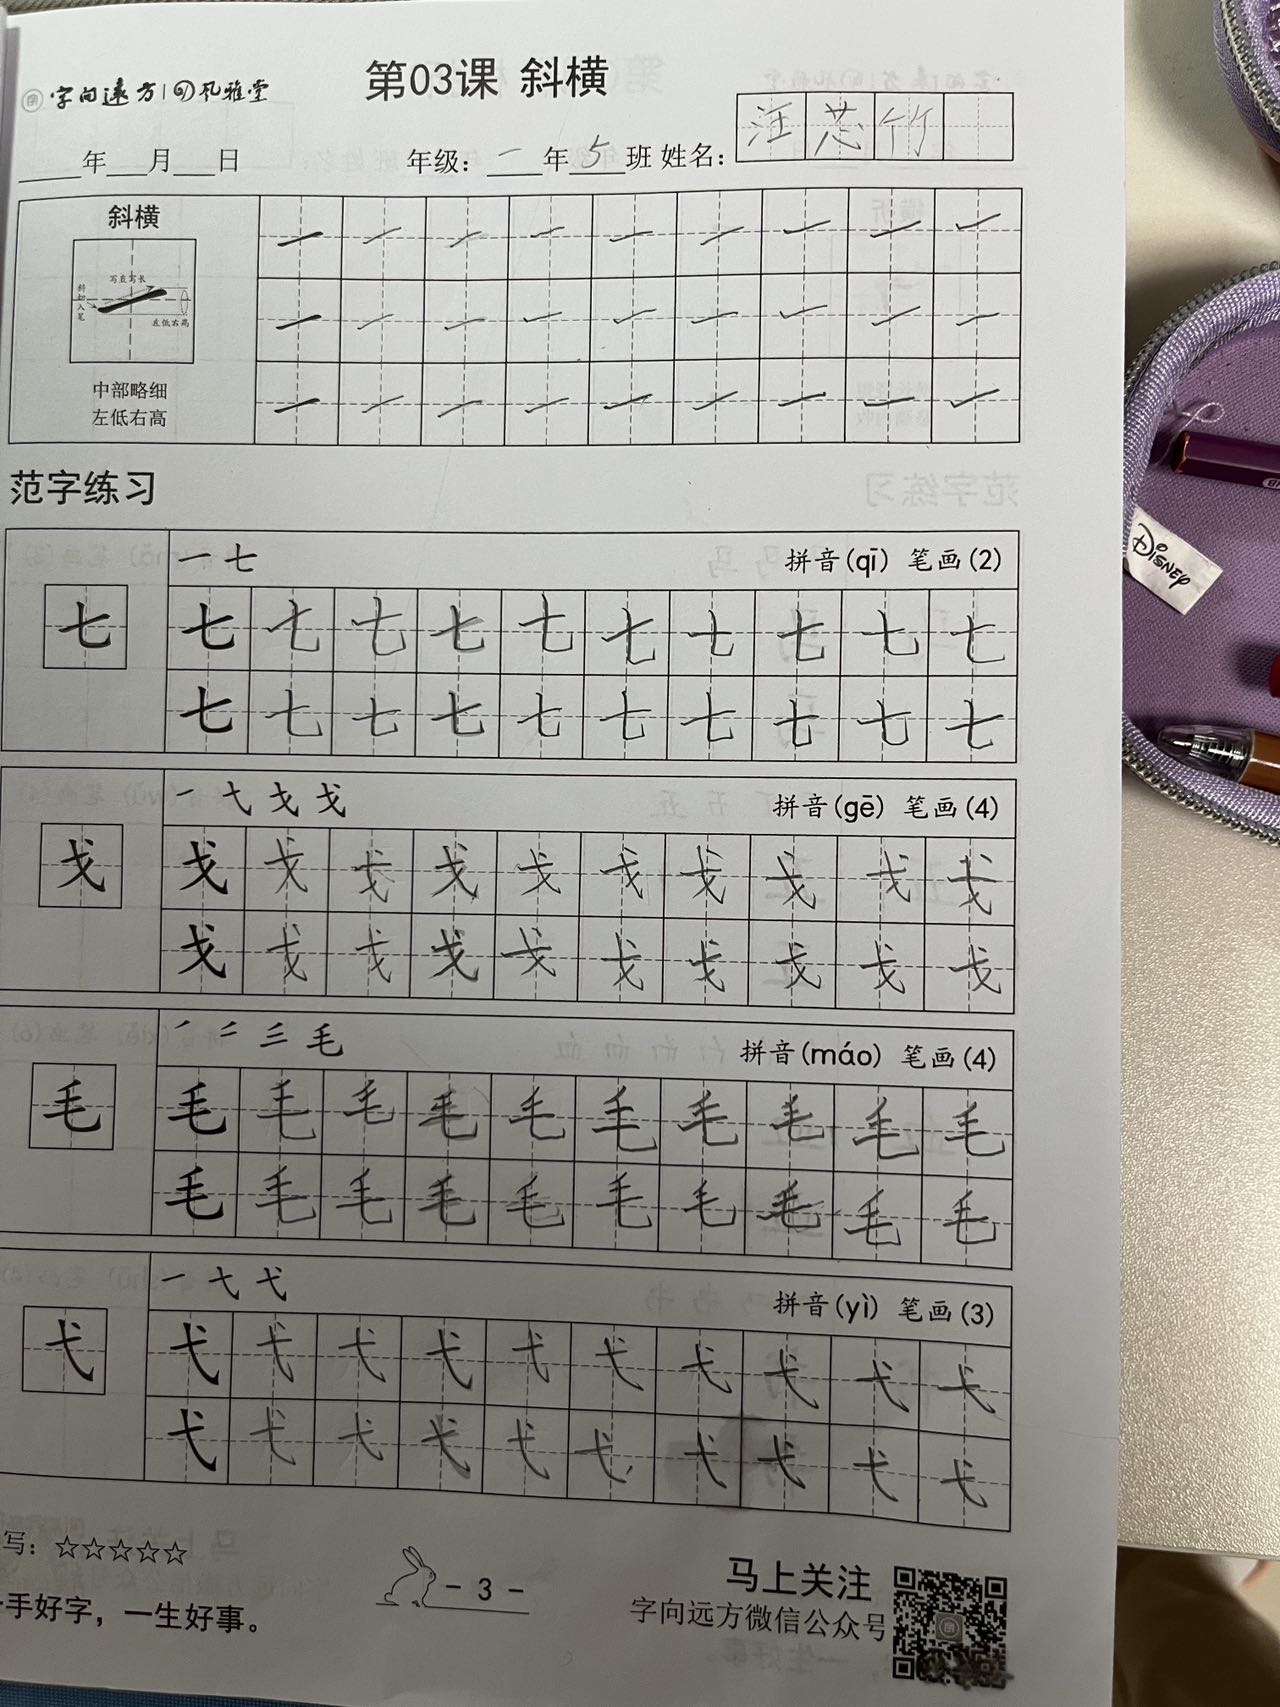 字向远方 | 孔雅堂
第03课 斜横
年 月 日 年级: 一 年 5 班 姓名: 汪芯竹
斜横
写直写长
斜切入笔
左低右高
中部略细
左低右高
范字练习
一 七 拼音(qī) 笔画(2)
七 七 七 七 七 七 七 七 七 七 七
七 七 七 七 七 七 七 七 七 七
一 弋 戈 戈 拼音(gē) 笔画(4)
戈 戈 戈 戈 戈 戈 戈 戈 戈 戈 戈
戈 戈 戈 戈 戈 戈 戈 戈 戈 戈
毛 拼音(máo) 笔画(4)
毛 毛 毛 毛 毛 毛 毛 毛 毛 毛 毛
毛 毛 毛 毛 毛 毛 毛 毛 毛 毛
一 弋 弋 拼音(yì) 笔画(3)
弋 弋 弋 弋 弋 弋 弋 弋 弋 弋 弋
弋 弋 弋 弋 弋 弋 弋 弋 弋 弋
写: ☆☆☆☆☆
手好字，一生好事。
- 3 -
马上关注
字向远方微信公众号
DISNEY